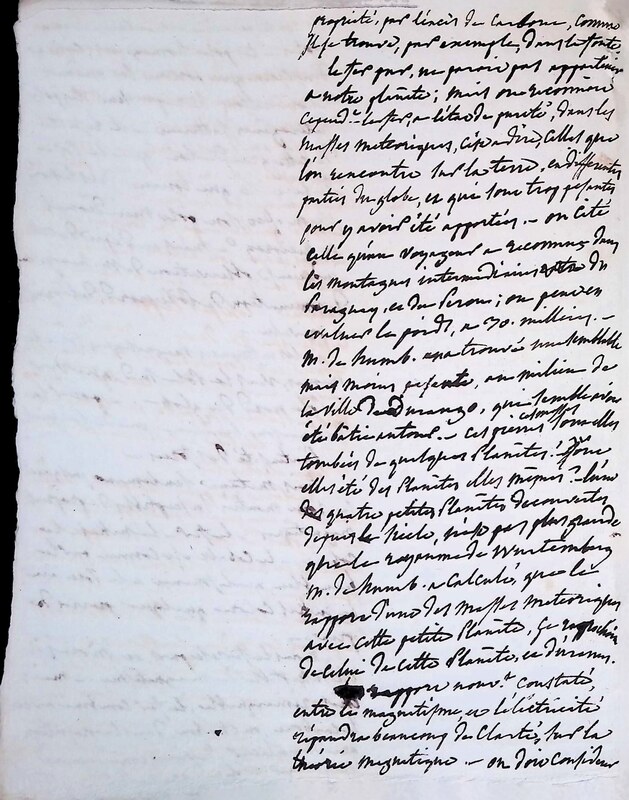 propriété, par l'excès de carbone, comme
il se trouve, par exemple, dans la fonte.
le fer pur, ne paroit pas appartenir
a notre planète; mais on reconnoit
cepend.t le fer a l'état de pureté, dans les
masses meteoriques, c'est a dire, celles que
l'on rencontre sur la terre, en differentes
parties du globe, et qui sont trop pesantes
pour y avoir été apportées. - on cite
celle qu'un voyageur a reconnue dans
les montagnes intermediaires du
Paraguay, et du Perou; on peut en
evaluer le poids, a 30. milliers. -
M. de Humb. en a trouvé une semblable
mais moins pesante, au milieu de
la ville de Durango, qui semble avoir
été bâtie autour. - ces pierres sont elles
tombées de quelques Planètes?
elles été des Planètes elles mêmes? l'une
des quatre petites Planètes decouvertes
depuis le siecle, n'est pas plus grande
que le royaume de Wurtemberg
M. de Humb. a calculé, que le
rapport d'une des masses meteoriques
avec cette petite Planète, est
de celui de cette Planète, et d'uranus.
rapport nouv.t constaté,
entre le magnetisme, et l'électricité
répandra beaucoup de clarté, sur la
théorie magnetique. - on doit considerer